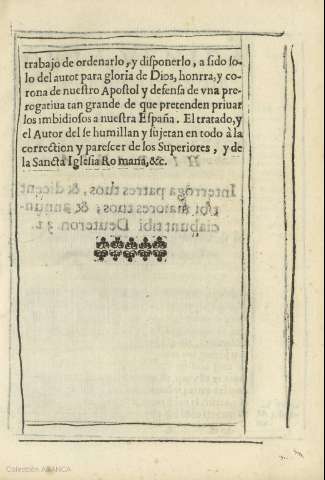 trabajo de ordenarlo, y disponerlo, a sido so-
lo del autor para gloria de Dios, honrra, y co-
rona de nuestro Apostol y defensa de vna pre-
rogatiua tan grande de que pretenden priuar
los imbidiosos a nuestra España. El tratado, y
el Autor del se humillan y sujetan en todo à la
correction y parescer de los Superiores, y de
la Sancta Iglesia Romana, &c.
Interroga patres tuos, & dicent
tibi maiores tuos, & annun-
ciabunt tibi Deuteron. 32.
Colección ABANCA